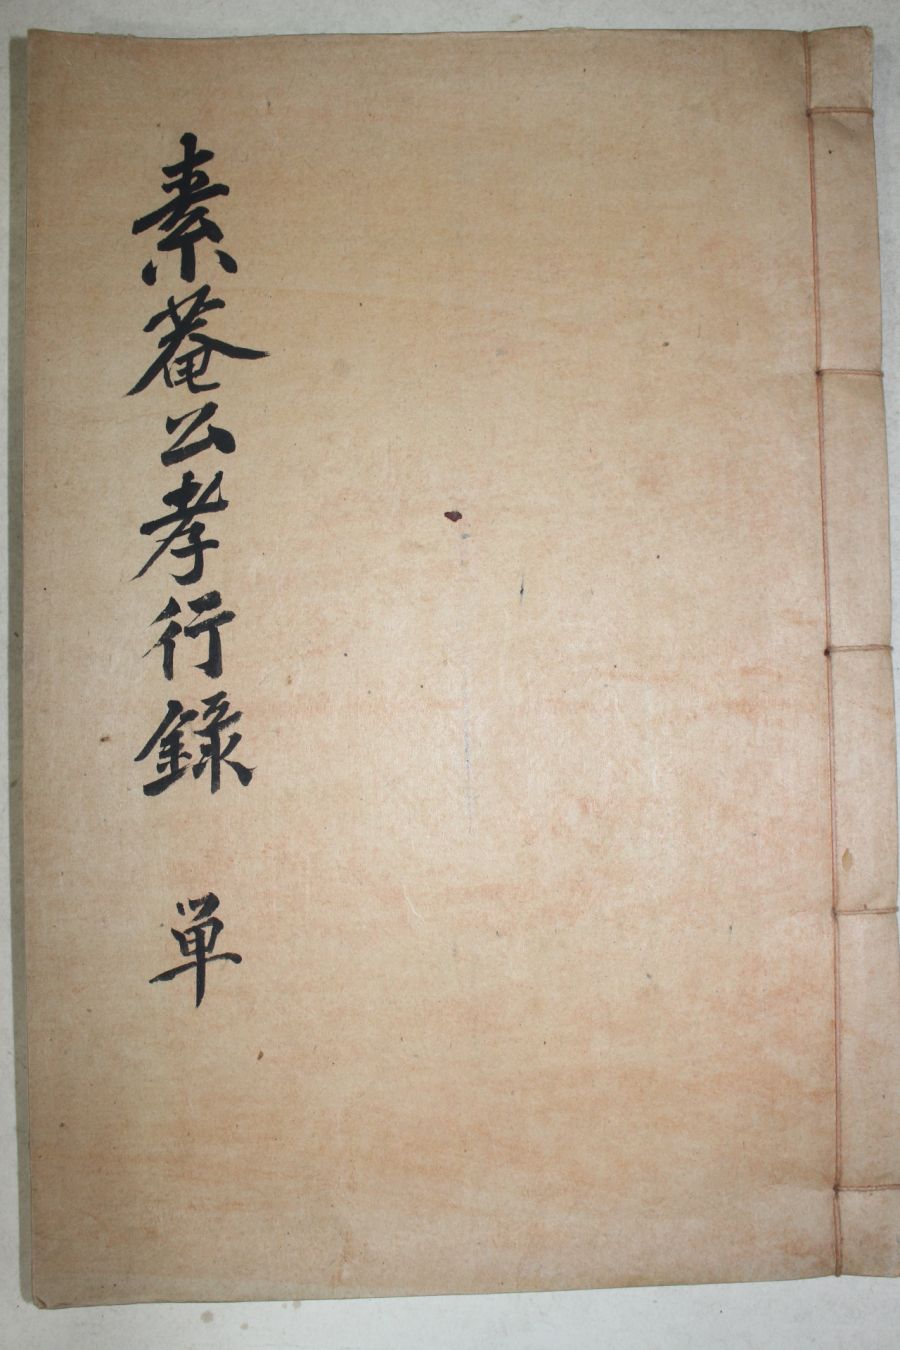 素菴公孝行錄 単